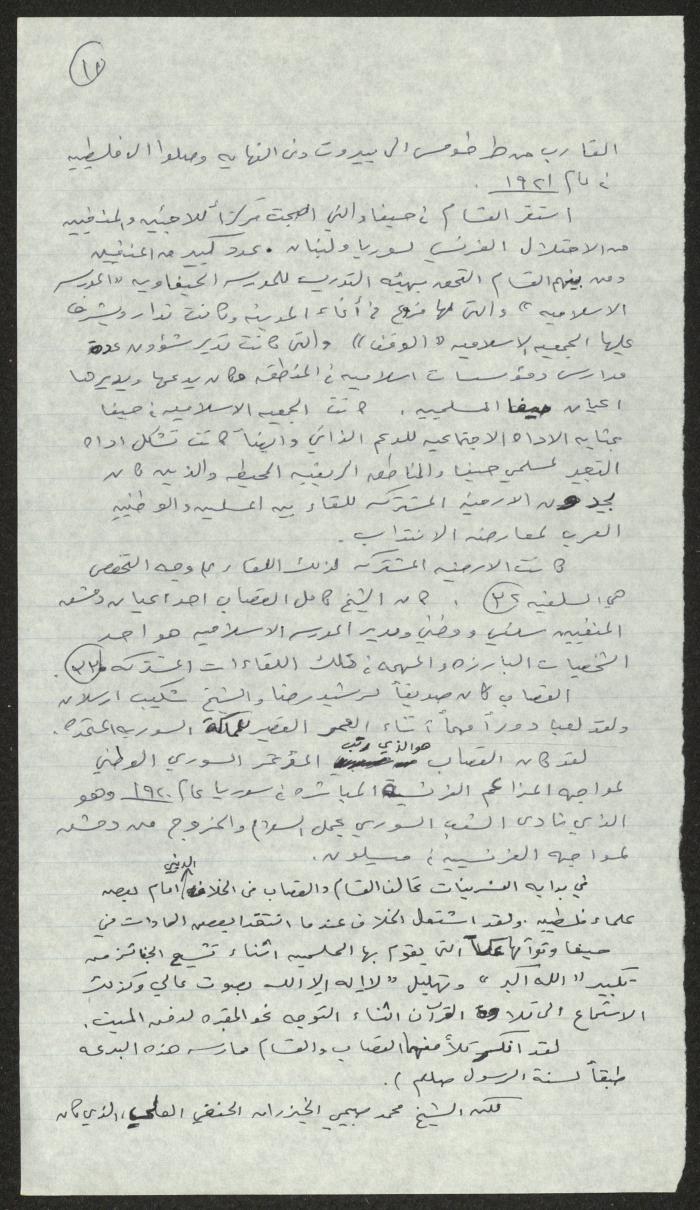 ١٨
القارب من طرطوس الى بيروت وفي النهايه وصلوا الى فلسطين
في عام ١٩٢١ .
استقر القسام في حيفا والتي اصبحت مركزاً للاجئين والمنفيين
من الاحتلال الفرنسي لسوريا ولبنان . عدد كبير من المنفيين
ومن بينهم القسام التحق بهيئه التدريس للمدرسه الحيفاويه "المدرسه
الاسلاميه" والتي لها فروع في أنحاء المدينه وكانت تدار ويشرف
عليها الجمعيه الاسلاميه "الوقف" والتي كانت تدير شؤون عدة
مدارس ومؤسسات اسلاميه في المنطقه وكان يدعمها ويديرها
اعيان حيفا المسلمين . كانت الجمعيه الاسلاميه في حيفا
بمثابه الاداه الاجتماعيه للدعم الذاتي وايضاً كانت تشكل اداه
لمسلمي حيفا والمناطق الريفيه المحيطه والذين كان
يجدون الارضيه المشتركه للقاء بين المسلمين والوطنيين
العرب لمعارضه الانتداب .
كانت الارضيه المشتركه لذلك اللقاء وجه التخصص
هي السلفيه ٣٢ . كان الشيخ كامل القصاب احد اعيان دمشق
المنفيين سلفي ووطني ومدير المدرسه الاسلاميه هو احد
الشخصيات البارزه والمهمه في تلك اللقاءات المشتركه ٣٣ .
القصاب كان صديقاً لرشيد رضا والشيخ شكيب ارسلان
ولقد لعبا دوراً مهماً أثناء العمر القصير للمملكة السوريه المتحده .
لقد كان القصاب هو الذي رتب المؤتمر السوري الوطني
لمواجهه المزاعم الفرنسية المباشره في سوريا عام ١٩٢٠ وهو
الذي نادى الشعب السوري بحمل السلاح والخروج من دمشق
لمواجهه الفرنسيين في ميسلون .
في بدايه العشرينات تحالفا القسام والقصاب في الخلاف الديني امام بعض
علماء فلسطين . ولقد اشتعل الخلاف عندما انتقدا بعض العادات في
حيفا وتوأمها عكا التي يقوم بها المسلمين اثناء تشيع الجنائز من
تكبير "الله اكبر" وتهليل "لا اله إلا الله بصوت عالي وكذلك
الاستماع الى تلاوة القرآن اثناء التوجه نحو المقبره لدفن الميت .
لقد انكر كلاً منهما القصاب والقسام ممارسه هذه البدعه
طبقاً لسنة الرسول صلعم ) .
لكن الشيخ محمد صبحي الخيزران الحنفي ، الذي كان